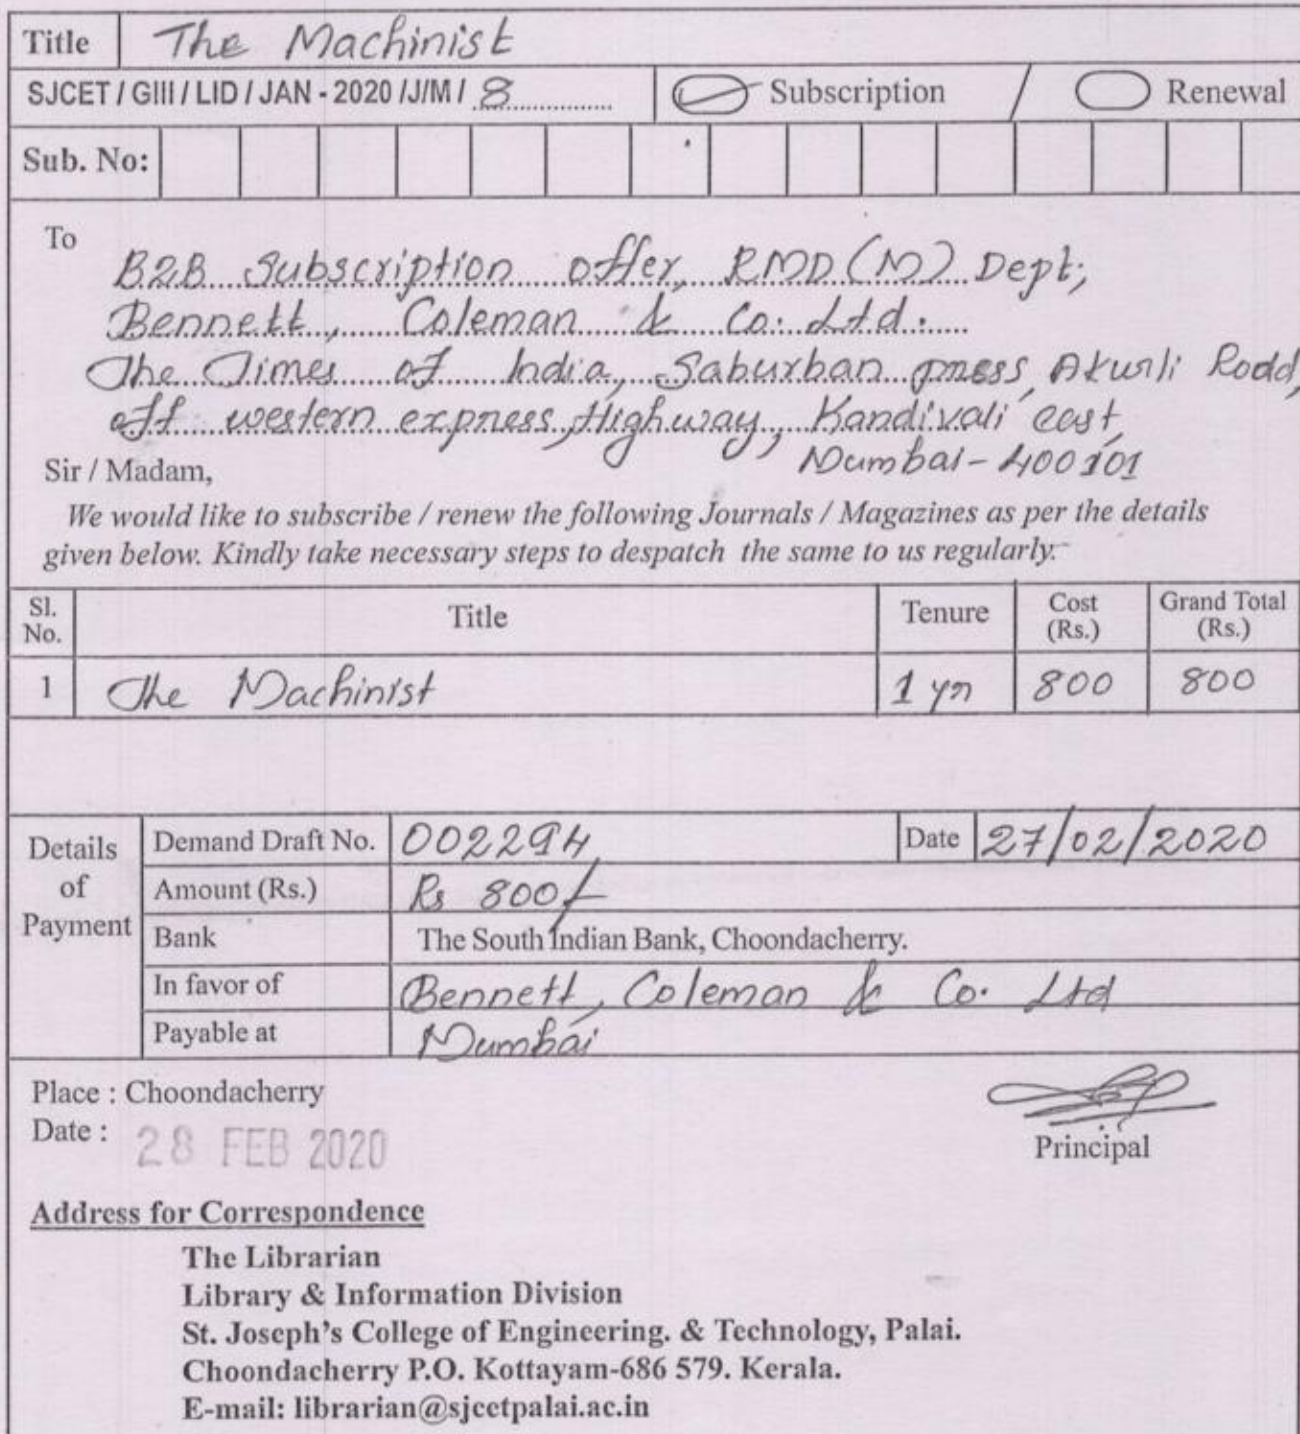 Title The Machinist
SJCET / GIII / LID / JAN - 2020 /J/M / 8 Subscription / Renewal
Sub. No:
To
B2B Subscription offer, RMD (M) Dept;
Bennett, Coleman & Co. Ltd.
The Times of India, Saburban press, Akurli Rodd,
off western express Highway, Kandivali east,
Mumbai - 400101
Sir / Madam,
We would like to subscribe / renew the following Journals / Magazines as per the details
given below. Kindly take necessary steps to despatch the same to us regularly.
Sl. No. Title Tenure Cost (Rs.) Grand Total (Rs.)
1 The Machinist 1 yr 800 800
Details of Payment
Demand Draft No. 002294 Date 27/02/2020
Amount (Rs.) Rs 800/-
Bank The South Indian Bank, Choondacherry.
In favor of Bennett, Coleman & Co. Ltd
Payable at Mumbai
Place : Choondacherry
Date : 28 FEB 2020
Principal
Address for Correspondence
The Librarian
Library & Information Division
St. Joseph's College of Engineering. & Technology, Palai.
Choondacherry P.O. Kottayam-686 579. Kerala.
E-mail: librarian@sjcetpalai.ac.in